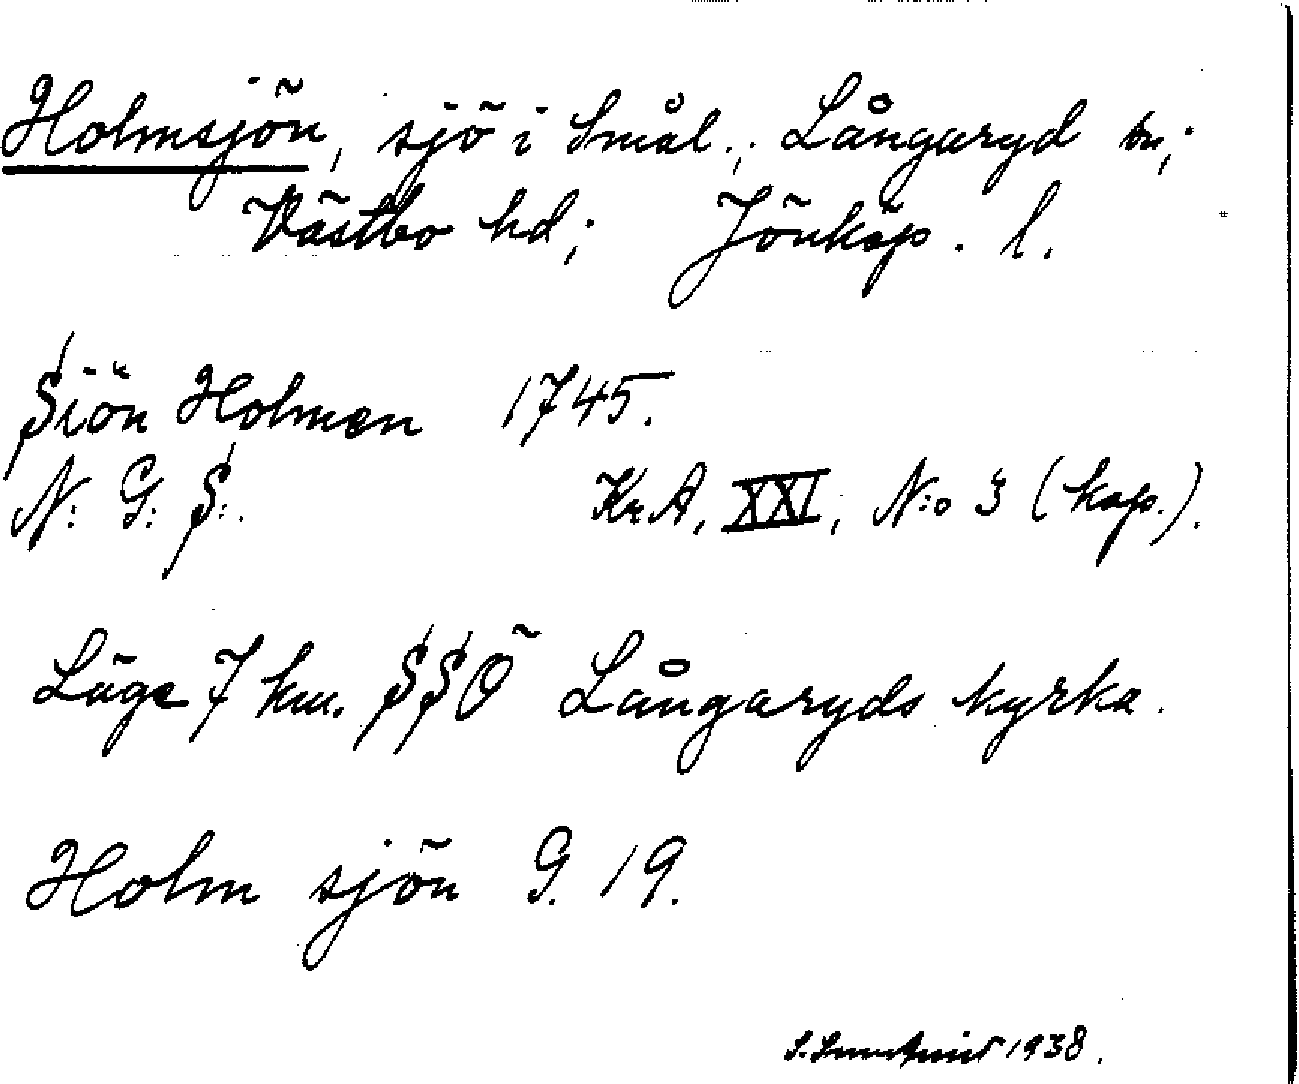 Holmsjön, sjö i Smål.; Långaryd sn;
Västbo hd; Jönköp. l.
Siön Holmen 1745.
N: G: S:.
KrA, XXI, N:o 3 (kop.).
Läge 7 km. SSO Långaryds kyrka.
Holm sjön G. 19.
1938.